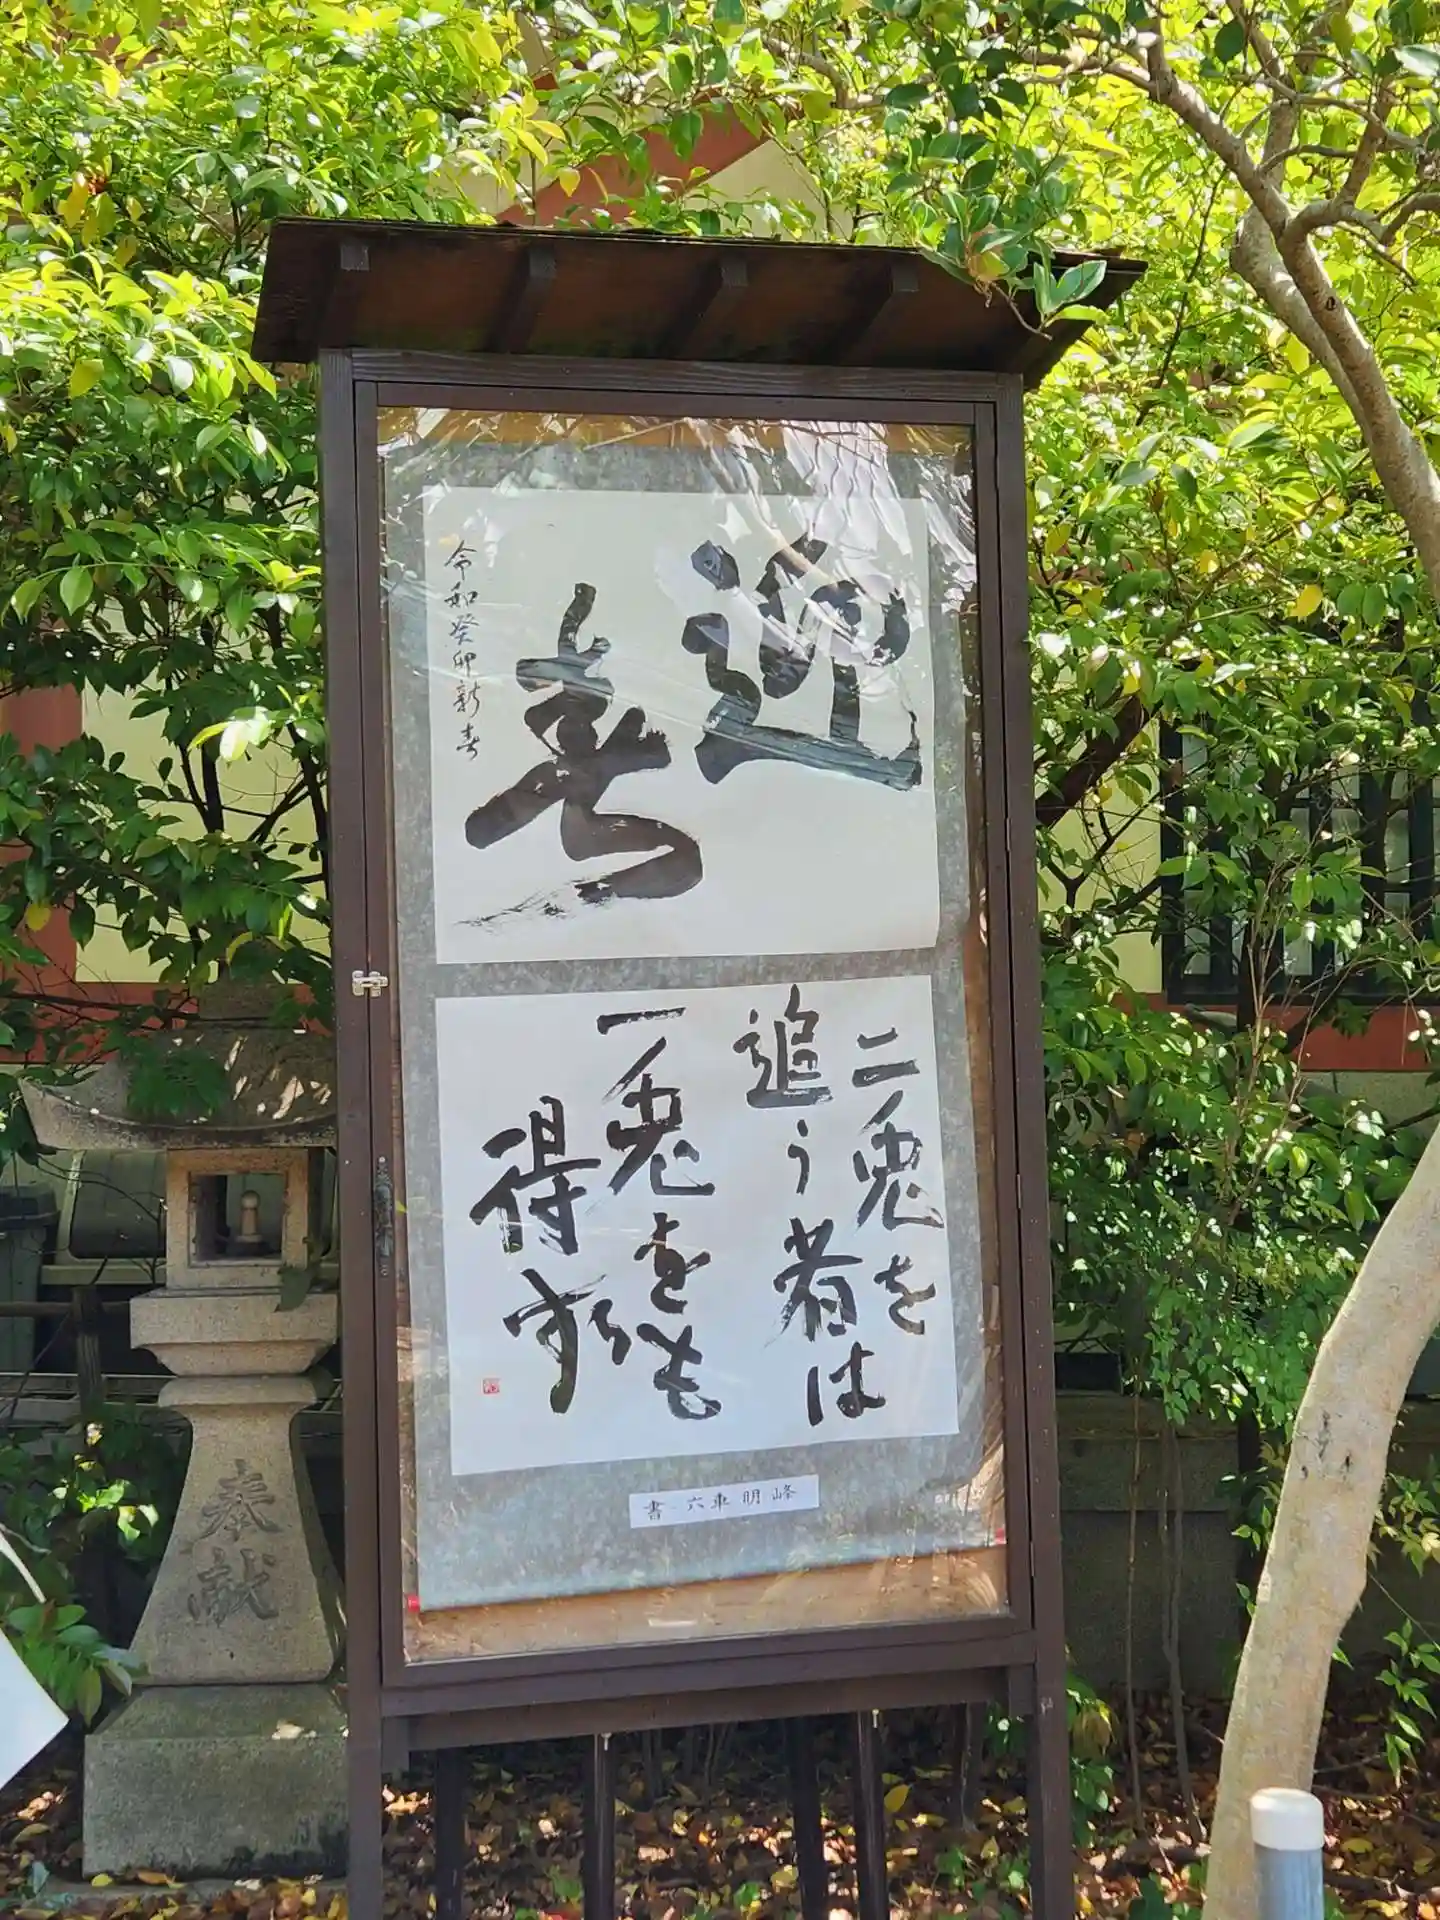 迎春
令和癸卯新春
二兎を
追う者は
一兎をも
得ず
書 六車明峰
奉献